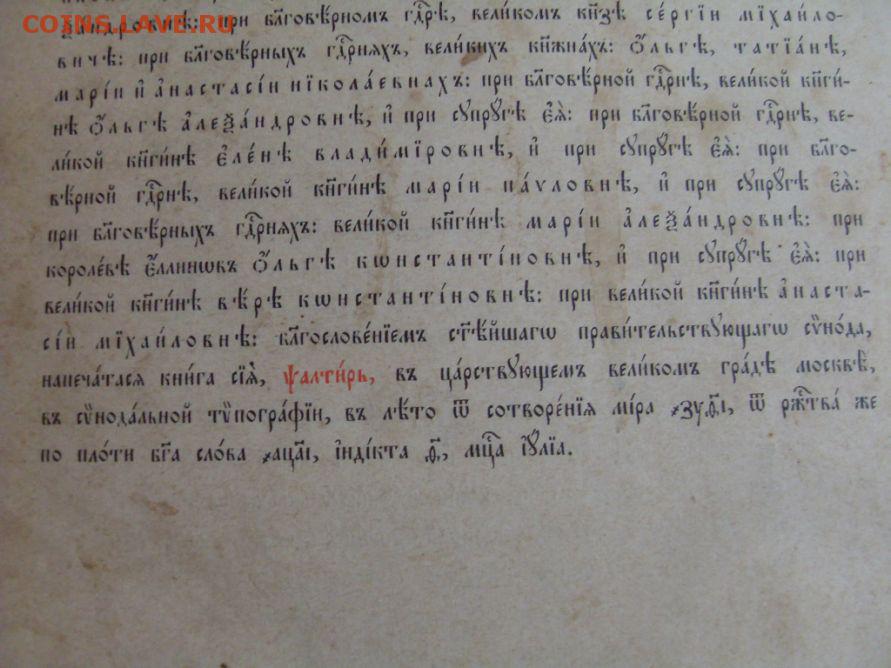 COINS.LAVE.RU
ѯандровичѣ: при бл҃говѣ́рномъ гдⷭ҇рѣ, великомъ кн҃зѣ се́ргіи мїха́ило-
вичѣ: при бл҃говѣ́рныхъ гдⷭ҇рняхъ, вели́кихъ кн҃жна́хъ: Ѻ҆́льгѣ, татїа́нѣ,
марі́и и҆ а҆настасі́и нїкола́евнахъ: при бл҃говѣ́рной гдⷭ҇рнѣ, вели́кой кн҃ги́-
нѣ Ѻ҆́льгѣ а҆леѯа́ндровнѣ, и҆ при сꙋпрꙋ́гѣ є҆ѧ̀: при бл҃говѣ́рной гдⷭ҇рнѣ, ве-
ли́кой кн҃ги́нѣ є҆ле́нѣ влади́мїровнѣ, и҆ при сꙋпрꙋ́гѣ є҆ѧ̀: при бл҃го-
вѣ́рной гдⷭ҇рнѣ, вели́кой кн҃ги́нѣ марі́и па́ѵловнѣ, и҆ при сꙋпрꙋ́гѣ є҆ѧ̀:
при бл҃говѣ́рныхъ гдⷭ҇рняхъ: вели́кой кн҃ги́нѣ марі́и а҆леѯа́ндровнѣ: при
короле́вѣ є҆́ллинѡвъ Ѻ҆́льгѣ кѡнстанті́новнѣ, и҆ при сꙋпрꙋ́гѣ є҆ѧ̀: при
вели́кой кн҃ги́нѣ вѣ́рѣ кѡнстанті́новнѣ: при вели́кой кн҃ги́нѣ а҆наста-
сі́и мїха́иловнѣ: бл҃гослове́нїемъ ст҃ѣ́йшагѡ прави́тельствꙋющагѡ сѷно́да,
напеча́тася кни́га сїѧ̀, ѱалти́рь, въ ца́рствꙋющемъ вели́комъ гра́дѣ москвѣ̀,
въ сѷнода́льной тѷпогра́фїи, въ лѣ́то ѿ сотворе́нїѧ мі́ра ҂зꙋ҃ді, ѿ ржⷭ҇тва̀ же
по пло́ти бг҃а сло́ва ҂ац҃ѕі, і҆нді́кта д҃, мцⷭ҇а і҆ꙋ́лїа.